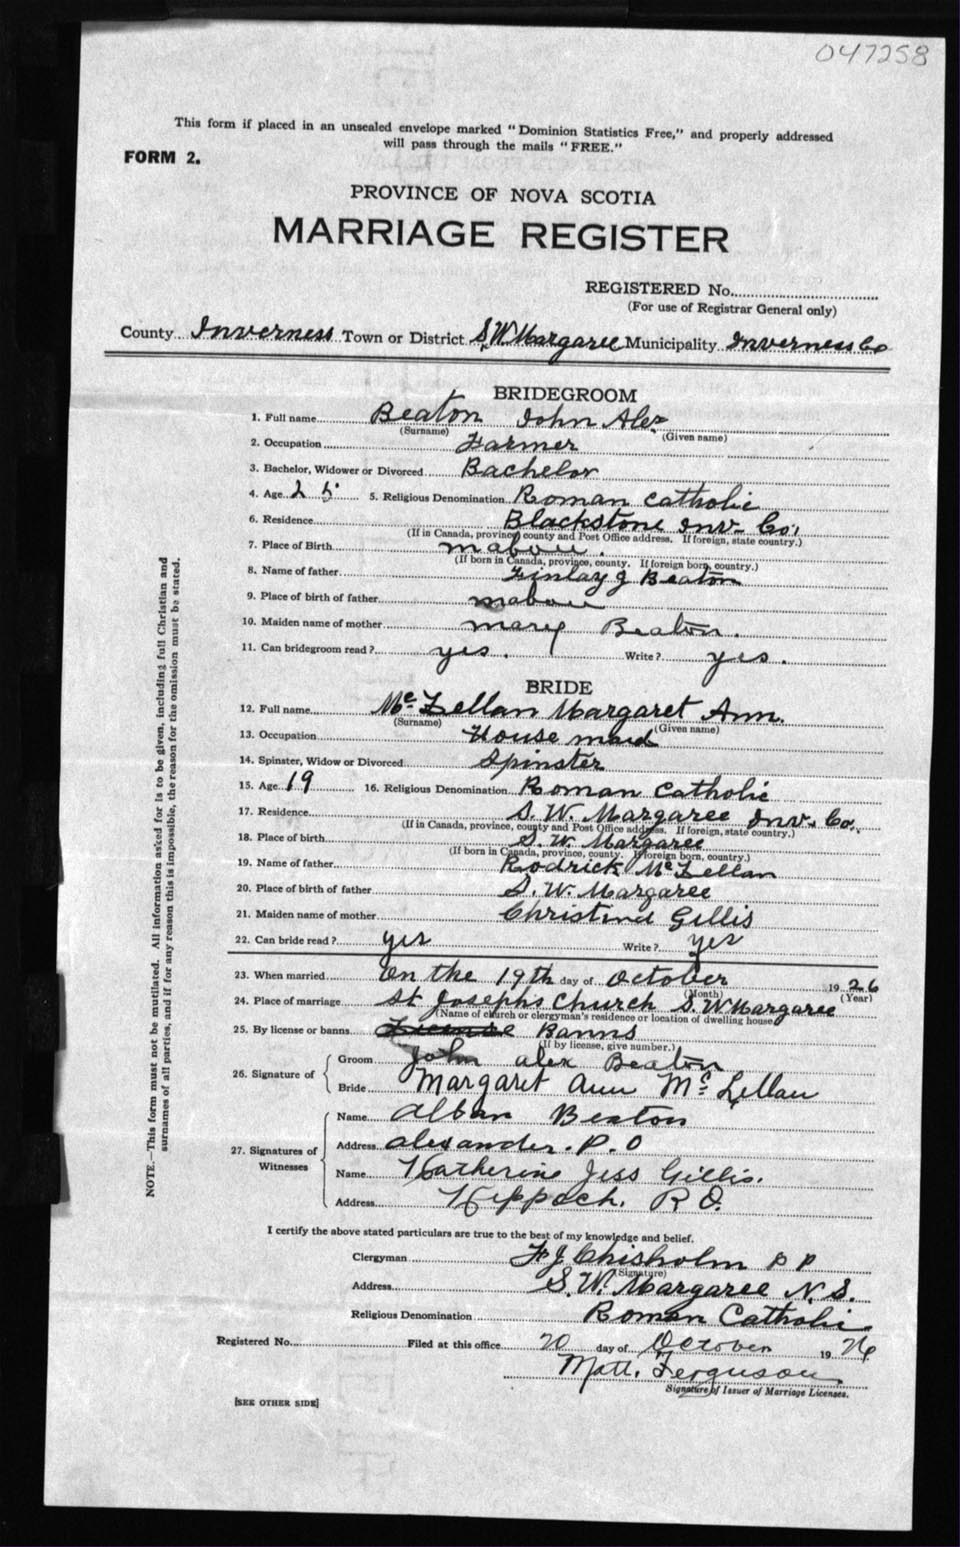 047258
This form if placed in an unsealed envelope marked "Dominion Statistics Free," and properly addressed
will pass through the mails "FREE."
FORM 2.
PROVINCE OF NOVA SCOTIA
MARRIAGE REGISTER
REGISTERED No.
(For use of Registrar General only)
County Inverness Town or District S.W Margaree Municipality Inverness Co
BRIDEGROOM
1. Full name Beaton John Alex
(Surname) (Given name)
2. Occupation Farmer
3. Bachelor, Widower or Divorced Bachelor
4. Age 25 5. Religious Denomination Roman Catholic
6. Residence Blackstone Inv- Co.
(If in Canada, province, county and Post Office address. If foreign, state country.)
7. Place of Birth mabou.
(If born in Canada, province, county. If foreign born, country.)
8. Name of father Finlay J Beaton
9. Place of birth of father mabou
10. Maiden name of mother mary Beaton.
11. Can bridegroom read? yes. Write? yes.
BRIDE
12. Full name McLellan Margaret Ann.
(Surname) (Given name)
13. Occupation House maid
14. Spinster, Widow or Divorced Spinster
15. Age 19 16. Religious Denomination Roman Catholic
17. Residence S. W. Margaree Inv. Co.
(If in Canada, province, county and Post Office address. If foreign, state country.)
18. Place of birth S. W. Margaree
(If born in Canada, province, county. If foreign born, country.)
19. Name of father Rodrick McLellan
20. Place of birth of father S. W. Margaree
21. Maiden name of mother Christina Gillis
22. Can bride read? yes Write? yes
23. When married On the 19th day of October 1926
(Month) (Year)
24. Place of marriage St Josephs Church S. W Margaree
(Name of church or clergyman's residence or location of dwelling house)
25. By license or banns License Banns
(If by license, give number.)
26. Signature of
Groom John alex Beaton
Bride Margaret Ann McLellan
27. Signatures of Witnesses
Name Alban Beaton
Address alexander. P. O
Name Katherine Jess Gillis.
Address Keppoch. R O.
I certify the above stated particulars are true to the best of my knowledge and belief.
Clergyman F J Chisholm P P
(Signature)
Address S. W. Margaree N. S.
Religious Denomination Roman Catholic
Registered No. Filed at this office 20 day of October 1926
Matt. Ferguson
Signature of Issuer of Marriage Licenses.
[SEE OTHER SIDE]
NOTE.—This form must not be mutilated. All information asked for is to be given, including full Christian and
surnames of all parties, and if for any reason this is impossible, the reason for the omission must be stated.